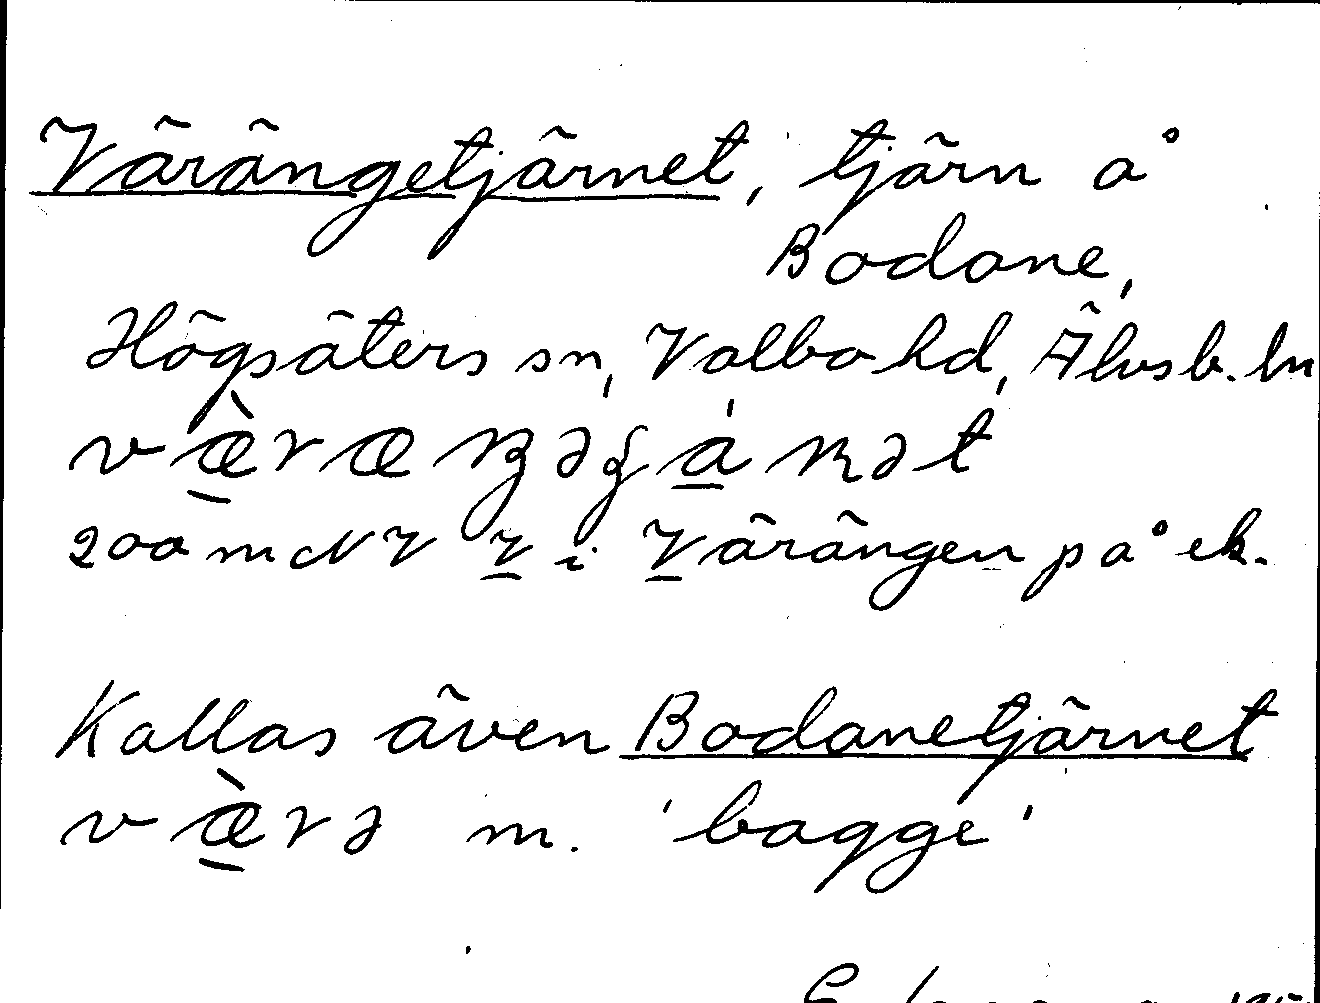 Värängetjärnet, tjärn å
Bodane,
Högsäters sn, Valbo hd, Älvsb. ln
200 m NV V i Värängen på ek.
Kallas även Bodanetjärnet
værə m. 'bagge'